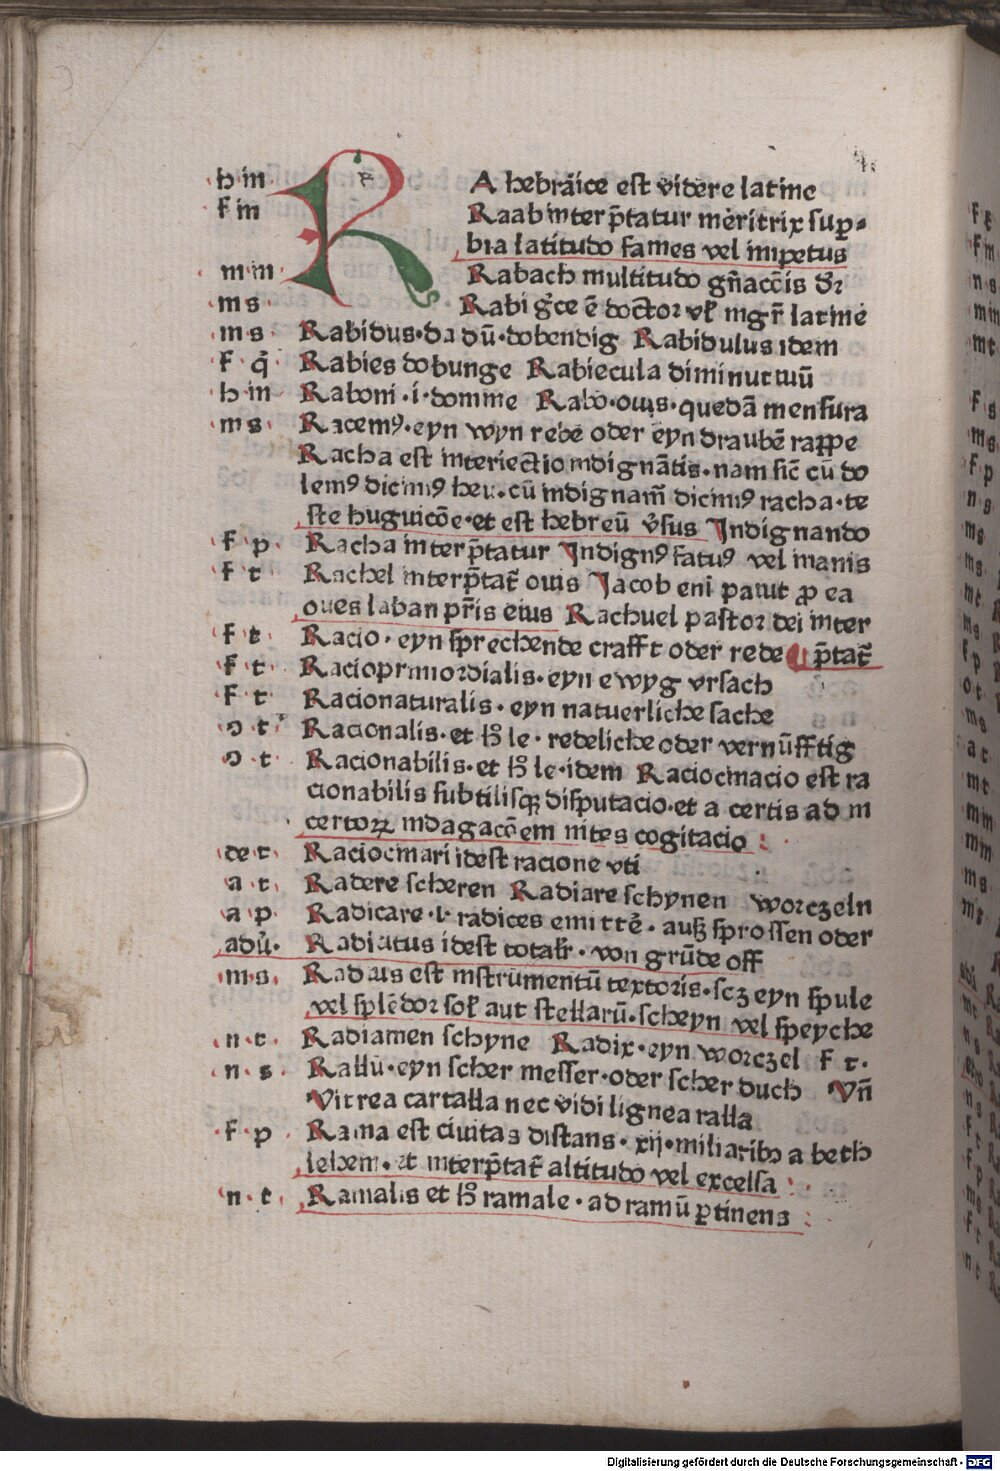 h in RA hebräice est videre latine
f in Raab interp̃tatur meritrix sup⸗
bia latitudo fames vel impetus
m in Rabach multitudo gñaccõis dr̃
m s Rabi gͥce ē doctor vł mgr̃ latine
m s Rabidus·da dū·dobendig Rabidulus idem
f q̃ Rabies dobunge Rabiecula diminutiuū
h in Raboni·i·domine Rabo·ouis·quedā mensura
m s Racemꝰ·eyn wyn rebē oder eyn draubē rappe
Racha est interiectio indignātis·nam sic̃ cū do
lemꝰ dicimꝰ heu·cū indignam̃ dicimꝰ racha·te
ste huguicōe·et est hebreū v̓sus Indignando
f p Racha interp̃tatur Indignꝰ fatuꝰ vel inanis
f t Rachel interp̃tat̃ ouis Jacob eni pauit ꝓ ea
oues laban pr̃is eius Rachuel pastor dei inter
f t Racio·eyn sprechende crafft oder rede p̃tat̃
f t Racioprimordialis·eyn ewyg vrsach
f t Racionaturalis·eyn natuerliche sache
ɔ t Racionalis·et h̃ le·redeliche oder vernūfftig
ɔ t Racionabilis·et h̃ le·idem Raciocinacio est ra
cionabilis subtilisqꝫ disputacio·et a certis ad in
certoꝝ indagacōem nites cogitacio
de t Raciocinari idest racione vti
a t Radere scheren Radiare schynen worczeln
a p Radicare·i·radices emittē·auß sprossen oder
adū· Radicitus idest totalr̃·von grūde off
m s Radius est instrumentū textoris·scꝫ eyn spule
vel splēdor soł aut stellarū·scheyn vel speyche
n t Radiamen schyne Radix·eyn worczel f t·
n s Rallū·eyn scher messer·oder scher duch Vñ
Vitrea cartalla nec vidi lignea ralla
f p Rama est ciuitas distans·xij·miliaribꝫ a beth
lehem·et interp̃tat̃ altitudo vel excelsa
n t Ramalis et h̃ ramale·ad ramū ꝑtinens
Digitalisierung gefördert durch die Deutsche Forschungsgemeinschaft - DFG